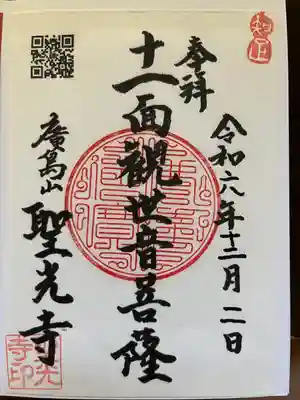 令和六年十二月二日
奉拝
十一面観世音菩薩
廣島山
聖光寺
聖光寺印